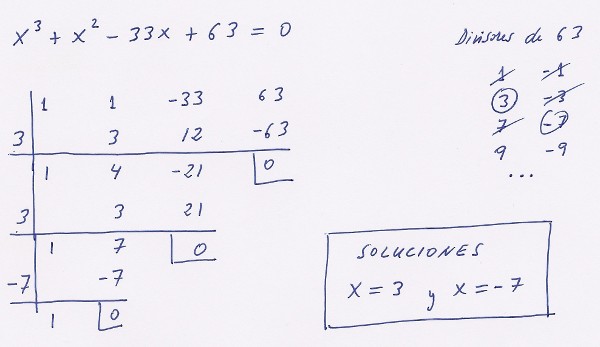 x³ + x² - 33x + 63 = 0
1 1 -33 63
3 3 12 -63
1 4 -21 0
3 3 21
1 7 0
-7 -7
1 0
Divisores de 63
1 -1
3 -3
7 -7
9 -9
...
SOLUCIONES
x = 3 y x = -7